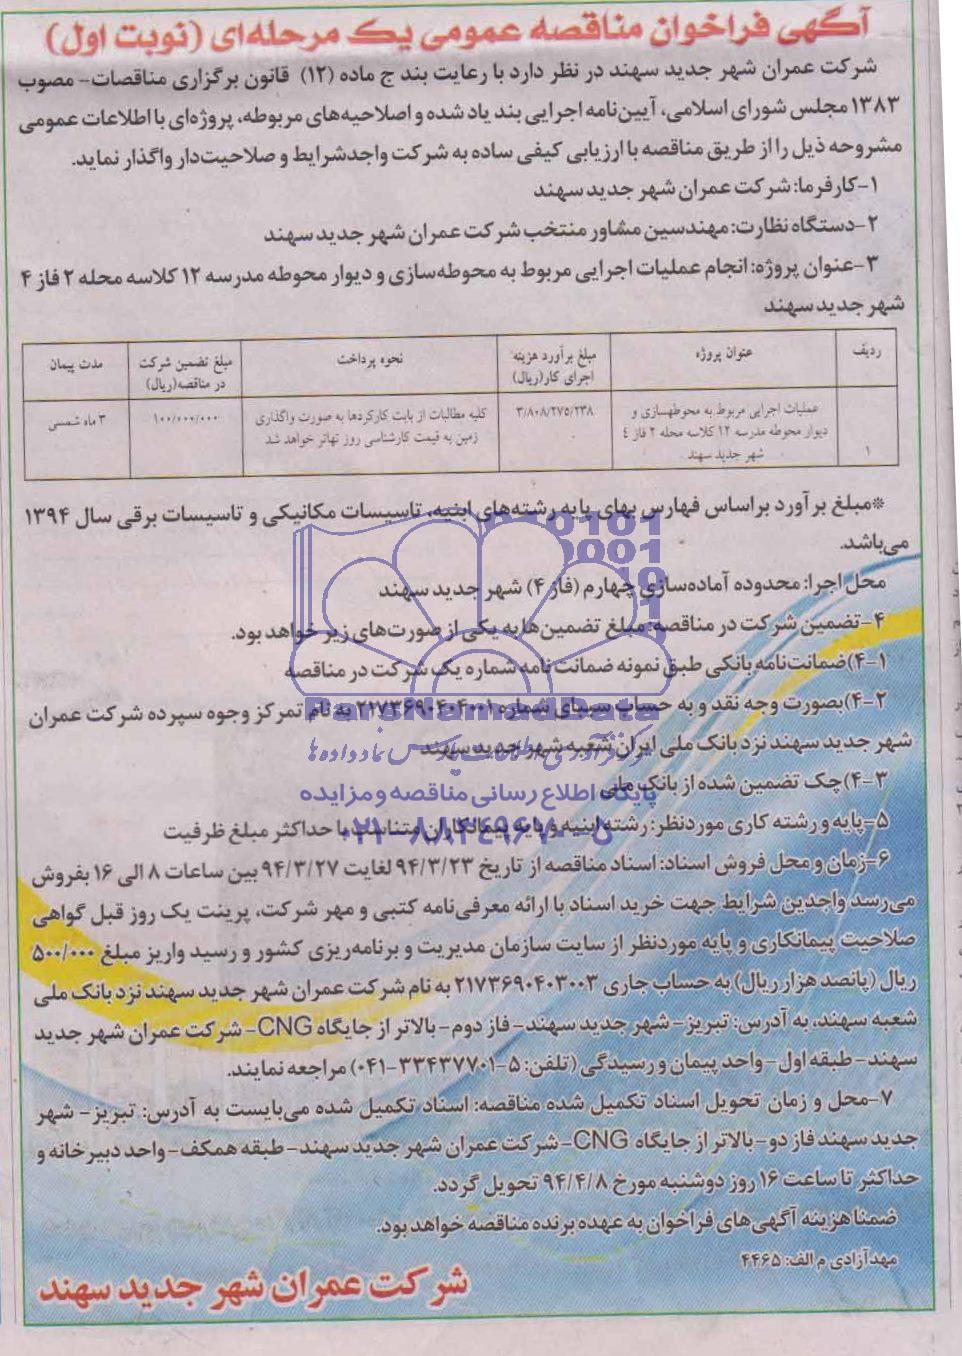 آگهی فراخوان مناقصه عمومی یک مرحله‌ای (نوبت اول)
شرکت عمران شهر جدید سهند در نظر دارد با رعایت بند ج ماده (۱۲) قانون برگزاری مناقصات- مصوب
۱۳۸۳ مجلس شورای اسلامی، آیین‌نامه اجرایی بند یاد شده و اصلاحیه‌های مربوطه، پروژه‌ای با اطلاعات عمومی
مشروحه ذیل را از طریق مناقصه با ارزیابی کیفی ساده به شرکت واجدشرایط و صلاحیت‌دار واگذار نماید.
۱-کارفرما: شرکت عمران شهر جدید سهند
۲-دستگاه نظارت: مهندسین مشاور منتخب شرکت عمران شهر جدید سهند
۳-عنوان پروژه: انجام عملیات اجرایی مربوط به محوطه‌سازی و دیوار محوطه مدرسه ۱۲ کلاسه محله ۲ فاز ۴
شهر جدید سهند
ردیف عنوان پروژه مبلغ برآورد هزینه اجرای کار(ریال) نحوه پرداخت مبلغ تضمین شرکت در مناقصه(ریال) مدت پیمان
۱ عملیات اجرایی مربوط به محوطهسازی و دیوار محوطه مدرسه ۱۲ کلاسه محله ۲ فاز ٤ شهر جدید سهند ۳/۸۰۸/۲۷۵/۲۳۸ کلیه مطالبات از بابت کارکردها به صورت واگذاری زمین به قیمت کارشناسی روز تهاتر خواهد شد ۱۰۰/۰۰۰/۰۰۰ ۳ ماه شمسی
*مبلغ برآورد براساس فهارس بهای پایه رشته‌های ابنیه، تاسیسات مکانیکی و تاسیسات برقی سال ۱۳۹۴
می‌باشد.
محل اجرا: محدوده آماده‌سازی چهارم (فاز ۴) شهر جدید سهند
۴-تضمین شرکت در مناقصه: مبلغ تضمین‌ها به یکی از صورت‌های زیر خواهد بود.
۴-۱)ضمانت‌نامه بانکی طبق نمونه ضمانت نامه شماره یک شرکت در مناقصه
۴-۲)بصورت وجه نقد و به حساب سیبای شماره ۲۱۷۳۶۹۰۴۰۴۰۰۱ به نام تمرکز وجوه سپرده شرکت عمران
شهر جدید سهند نزد بانک ملی ایران شعبه شهر جدید سهند
۴-۳)چک تضمین شده از بانک ملی
۵-پایه و رشته کاری موردنظر: رشته ابنیه و پایه پیمانکاران متناسب با حداکثر مبلغ ظرفیت
۶-زمان و محل فروش اسناد: اسناد مناقصه از تاریخ ۹۴/۳/۲۳ لغایت ۹۴/۳/۲۷ بین ساعات ۸ الی ۱۶ بفروش
می‌رسد واجدین شرایط جهت خرید اسناد با ارائه معرفی‌نامه کتبی و مهر شرکت، پرینت یک روز قبل گواهی
صلاحیت پیمانکاری و پایه موردنظر از سایت سازمان مدیریت و برنامه‌ریزی کشور و رسید واریز مبلغ ۵۰۰/۰۰۰
ریال (پانصد هزار ریال) به حساب جاری ۲۱۷۳۶۹۰۴۰۳۰۰۳ به نام شرکت عمران شهر جدید سهند نزد بانک ملی
شعبه سهند، به آدرس: تبریز- شهر جدید سهند- فاز دوم- بالاتر از جایگاه CNG- شرکت عمران شهر جدید
سهند- طبقه اول- واحد پیمان و رسیدگی (تلفن: ۵-۳۳۴۳۷۷۰۱-۰۴۱) مراجعه نمایند.
۷-محل و زمان تحویل اسناد تکمیل شده مناقصه: اسناد تکمیل شده می‌بایست به آدرس: تبریز- شهر
جدید سهند فاز دو- بالاتر از جایگاه CNG- شرکت عمران شهر جدید سهند- طبقه همکف- واحد دبیرخانه و
حداکثر تا ساعت ۱۶ روز دوشنبه مورخ ۹۴/۴/۸ تحویل گردد.
ضمنا هزینه آگهی‌های فراخوان به عهده برنده مناقصه خواهد بود.
مهدآزادی م الف: ۴۴۶۵
شرکت عمران شهر جدید سهند
ParsNamadData
پایگاه اطلاع رسانی مناقصه و مزایده
۰۲۱-۸۸۳٤۹۶۷۰-۵